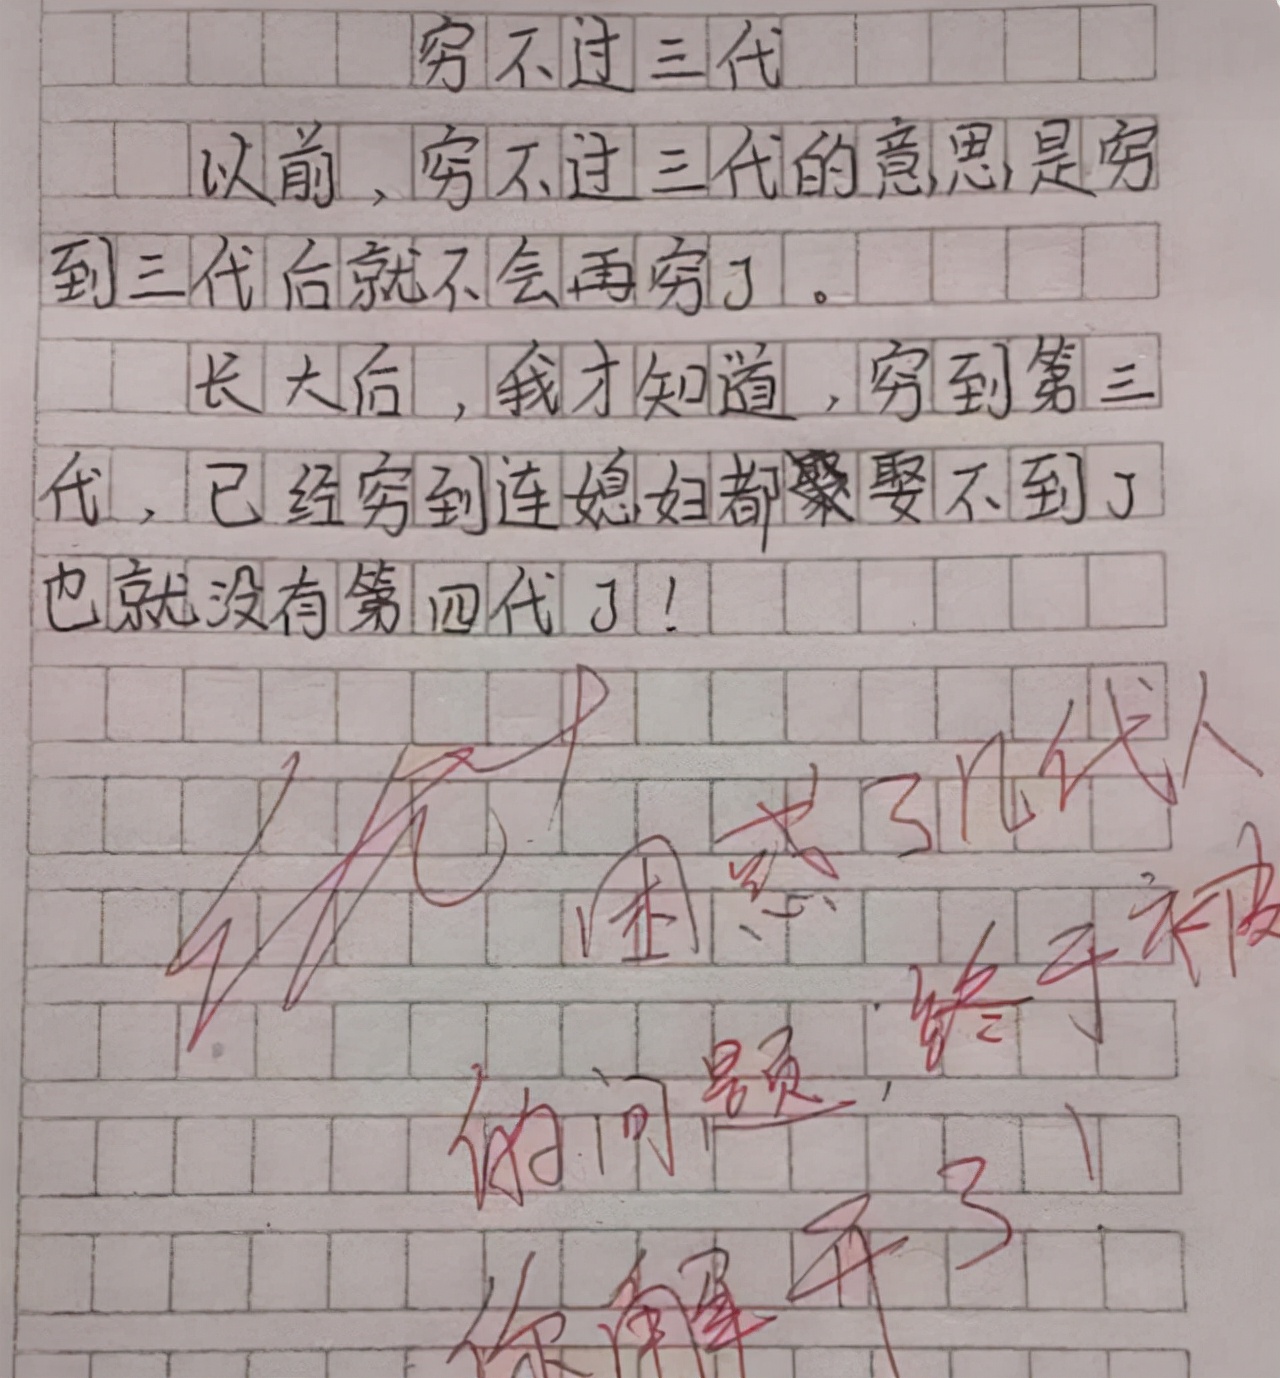 穷不过三代
以前，穷不过三代的意思是穷
到三代后就不会再穷了。
长大后，我才知道，穷到第三
代，已经穷到连媳妇都娶不到了
也就没有第四代了！
优
困惑了几代人
的问题，终于被
你解开了！